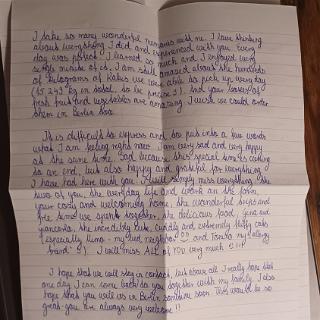 I take so many wonderful memories with me. I love thinking
about everything I did and experienced with you. Every
day was perfect. I learned so much and I enjoyed every
single minute of it. I am still amazed about the hundreds
of kilograms of Kakis we were able to pick up every day
(65 249 kg in total, to be precise!). And your boxes of
fresh fruit and vegetables are amazing. I wish we could order
them in Berlin too.
It is difficult to express and to put into a few words
what I am feeling right now. I am very sad and very happy
at the same time. Sad because this special time is coming
to an end, but also happy and grateful for everything
I have had here with you. I will simply miss everything. The
two of you, the everyday life and work on the farm,
your cozy and welcoming home, the wonderful trips and
free time we spent together, the delicious food, your
pancarts, the incredibly cute, cuddly and extremely fluffy cats
(especially Limo - my "bed neighbor" and Tomba my "allergy
friend"). I will miss ALL of YOU very much !!!
I hope that we will stay in contact, but above all I really hope that
one day I can come back to you together with my family. I also
hope that you visit us in Berlin sometime soon. This would be so
great. You are always very welcome!!